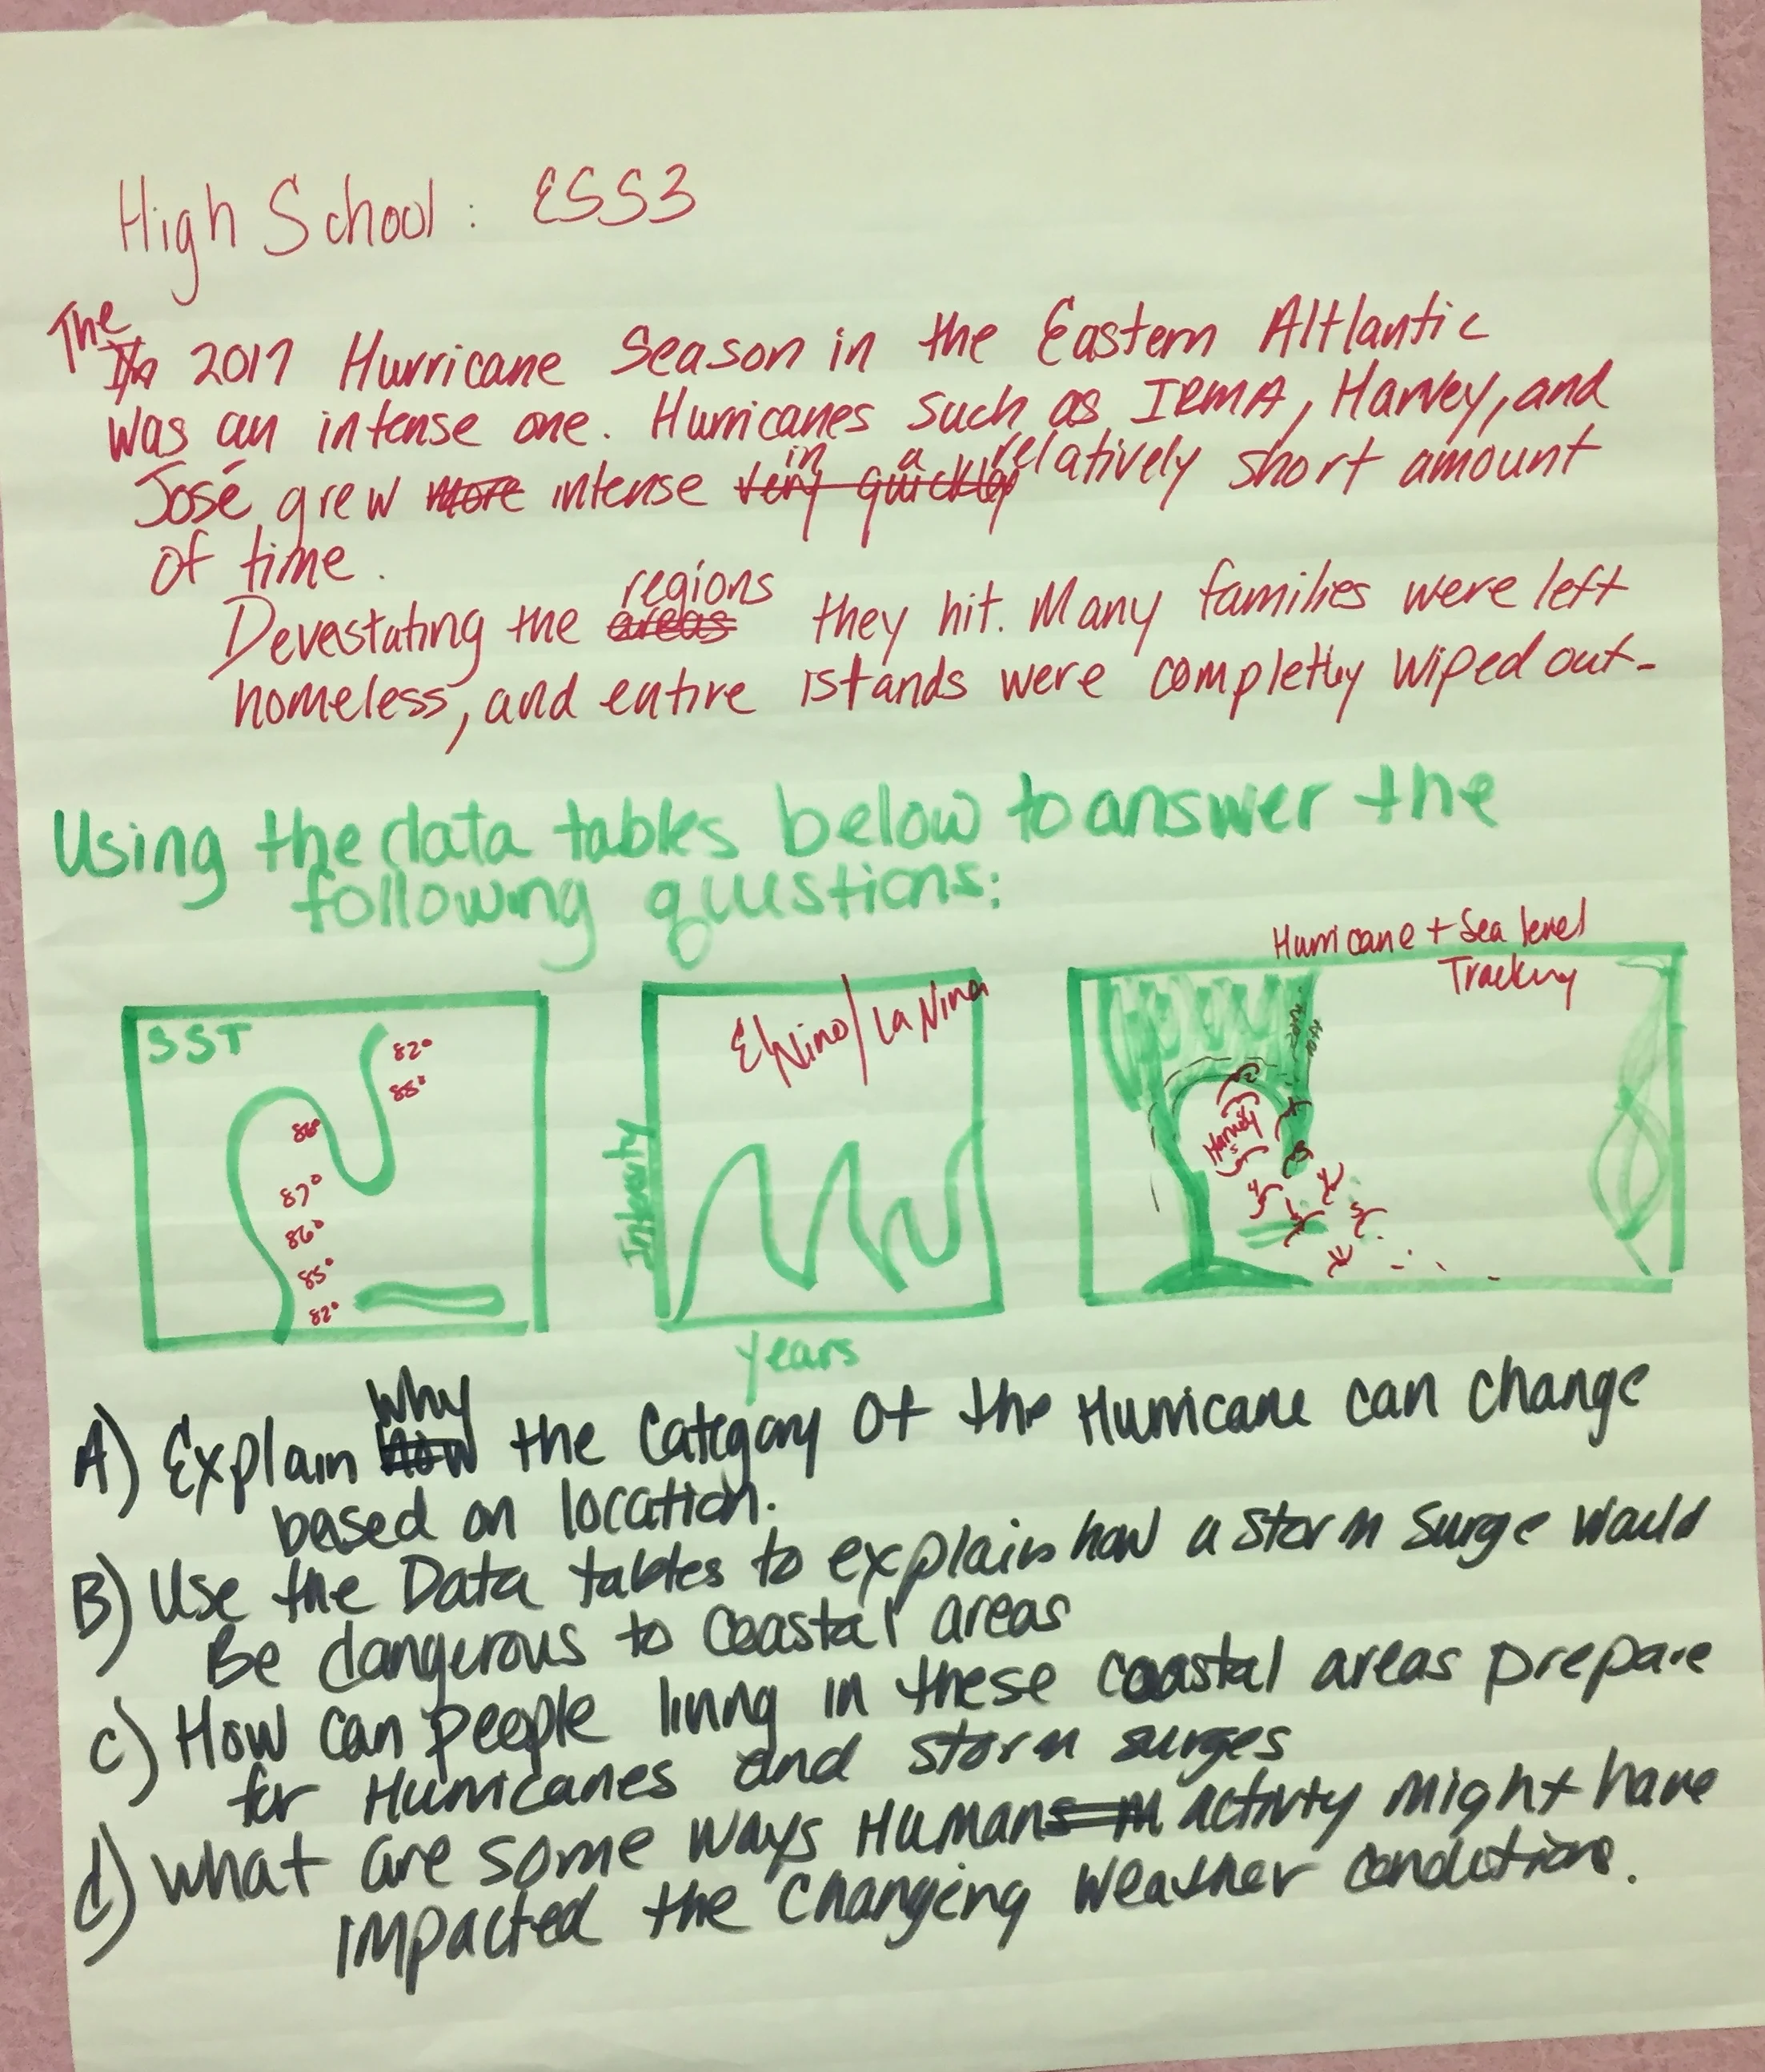 High School: ESS3
The
In 2017 Hurricane Season in the Eastern Altlantic
was an intense one. Hurricanes such as IRMA, Harvey, and
in a relatively
José, grew more intense very quickly short amount
of time.
regions
Devastating the areas they hit. Many families were left
homeless, and entire istands were completly wiped out.
Using the data tables below to answer the
following questions:
Hurricane + Sea level
Tracking
SST
82°
88°
86°
87°
86°
85°
82°
El Nino/La Nina
Intensity
years
Harvey
5
4
5
5
Why
A) Explain how the Category Of the Hurricane can change
based on location.
B) Use the Data tables to explain how a storm surge would
Be dangerous to Coastal areas
c) How can people living in these coastal areas prepare
for Hurricanes and storm surges
d) what are some ways Humans activity might have
impacted the Changing weather conditions.